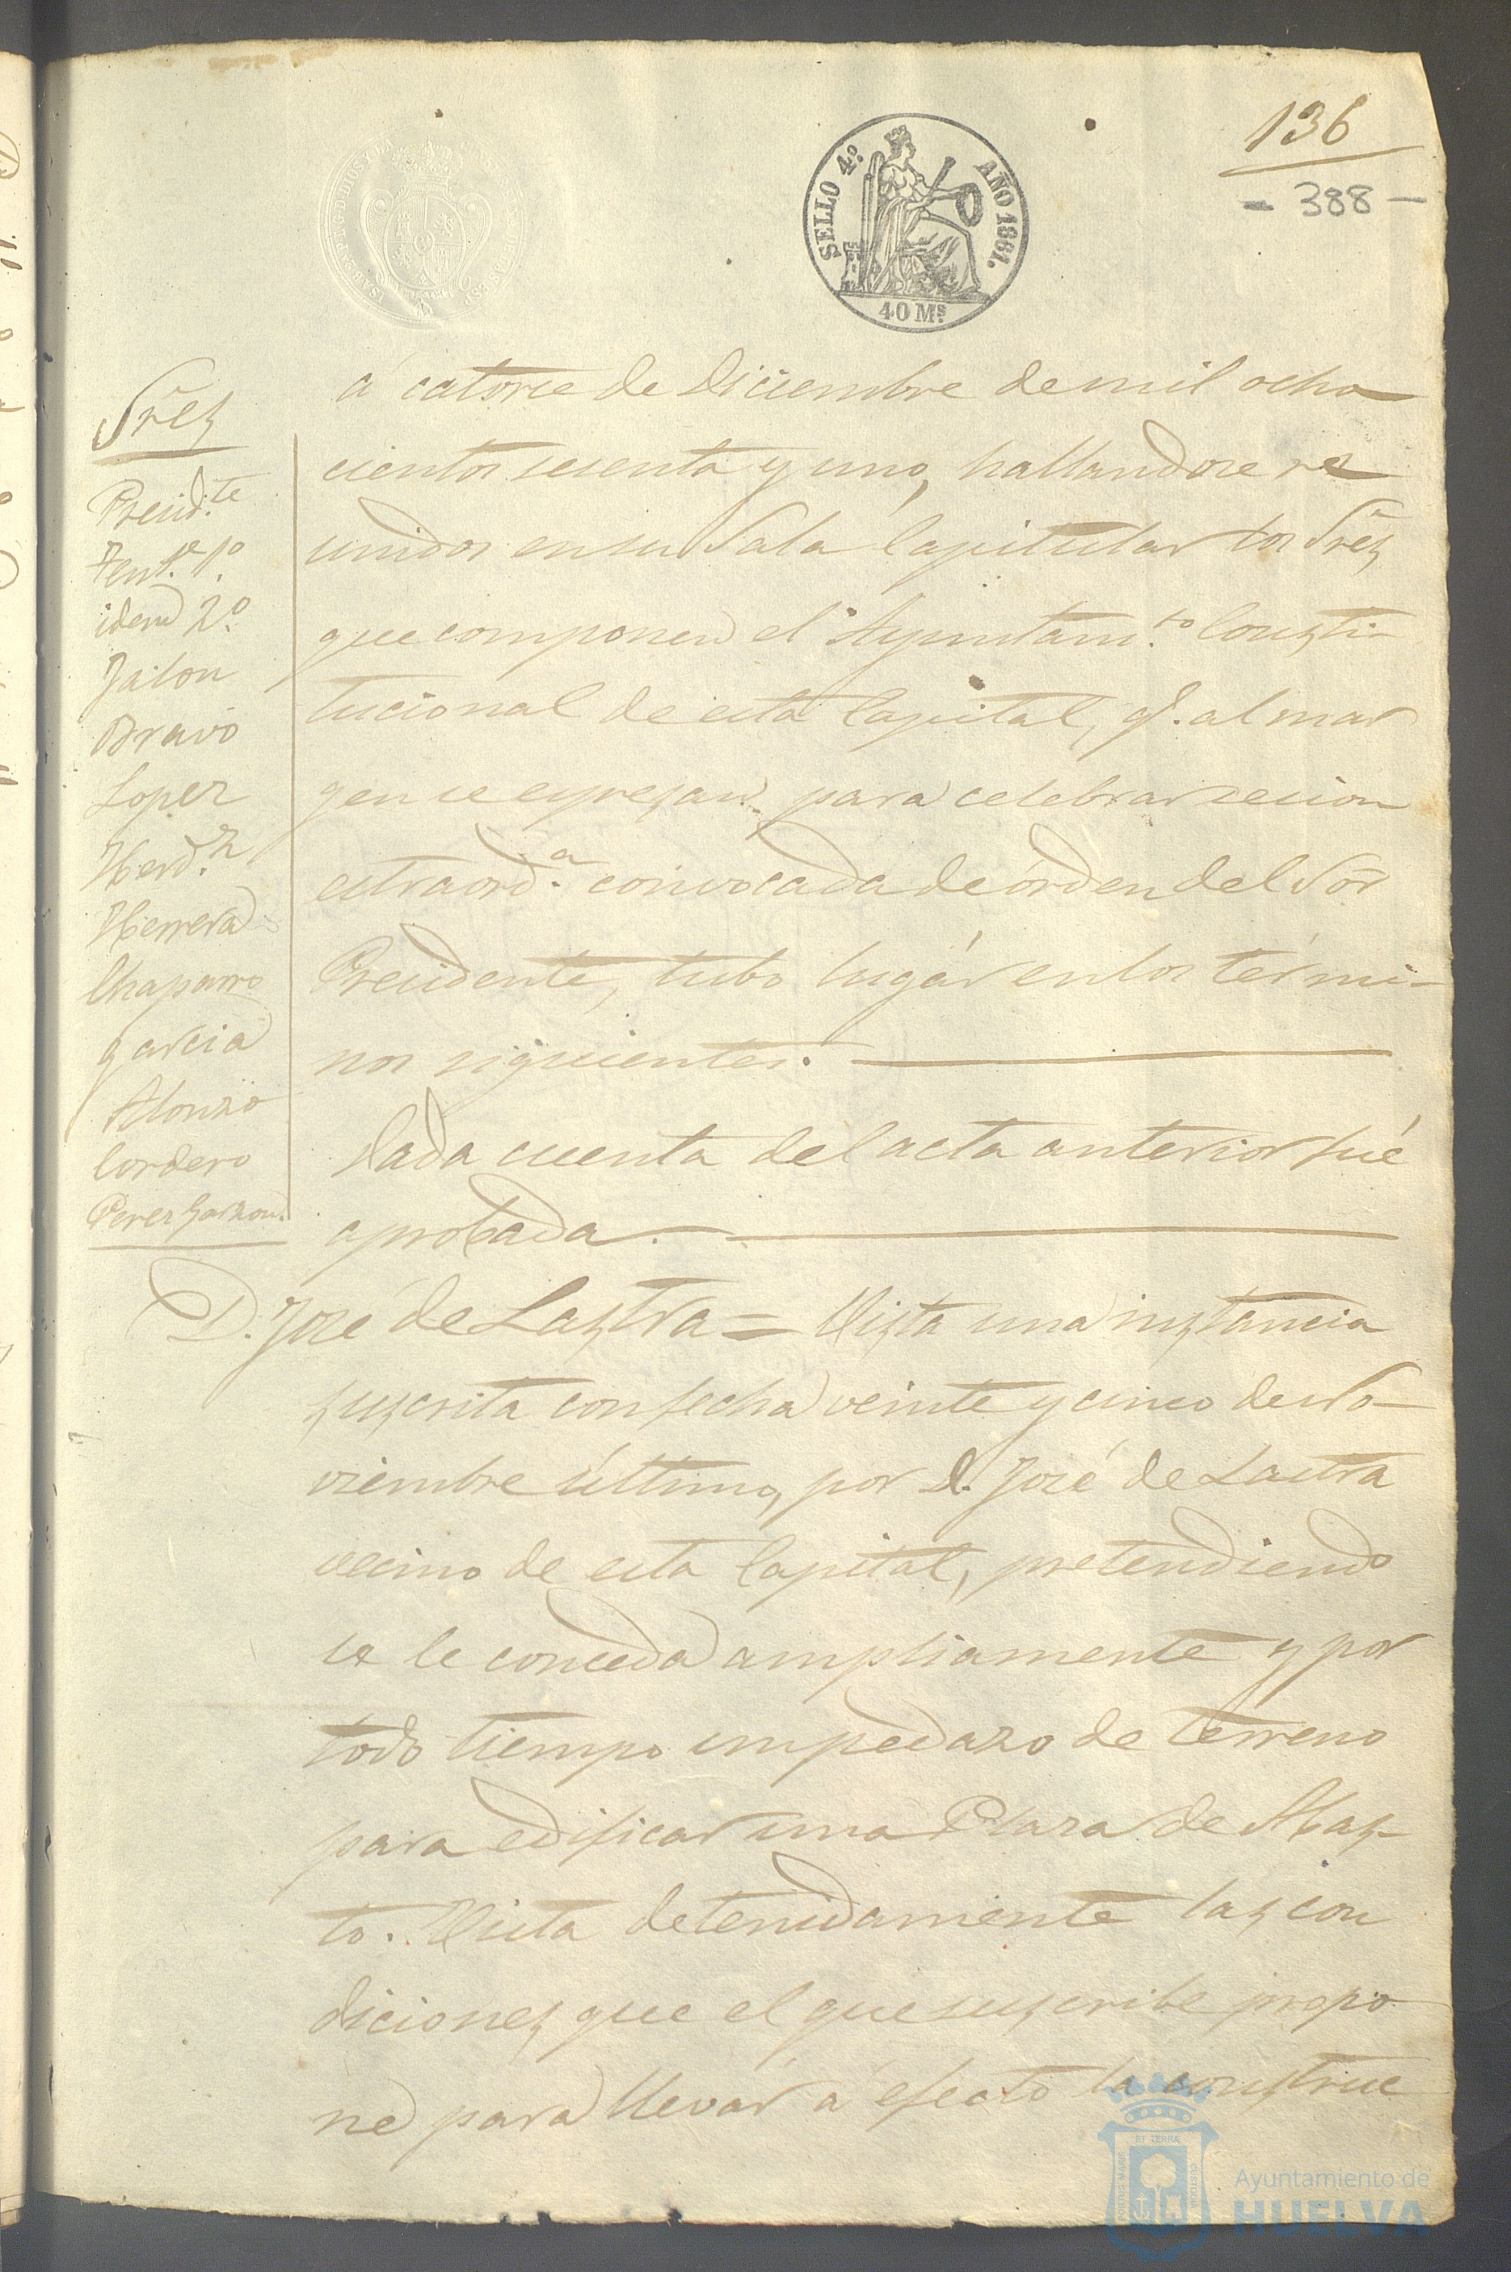 136
- 388 -
SELLO 4.º AÑO 1861.
40 Ms.
Sres
Presid.te
Tent.e 1.º
idem 2.º
Jalon
Bravo
Lopez
Herd.z
Herrera
Chaparro
garcia
Alonzo
Cordero
Perez Garzon.
á catorce de Diciembre de mil ocho
cientos sesenta y uno, hallandose re
unidos en su Sala Capitular los Sres
que componen el Ayuntam.to Consti-
tucional de esta Capital, q.e al mar
gen se espresan para celebrar secion
estraord.a convocada de órden del Sor
Presidente, tubo lugár en los térmi-
nos siguientes.
Dada cuenta del acta anterior fué
aprobada.
D. José de Lastra = Vista una instancia
suscrita con fecha veinte y cinco de No-
viembre último, por D. José de Lastra
vecino de esta Capital, pretendiendo
se le conceda ampliamente y por
todo tiempo un pedazo de terreno
para edificar una Plaza de Abas-
to. Vista detenidamente las con
diciones que el que suscribe propo
ne para llevar á efecto la construc
Ayuntamiento de
HUELVA